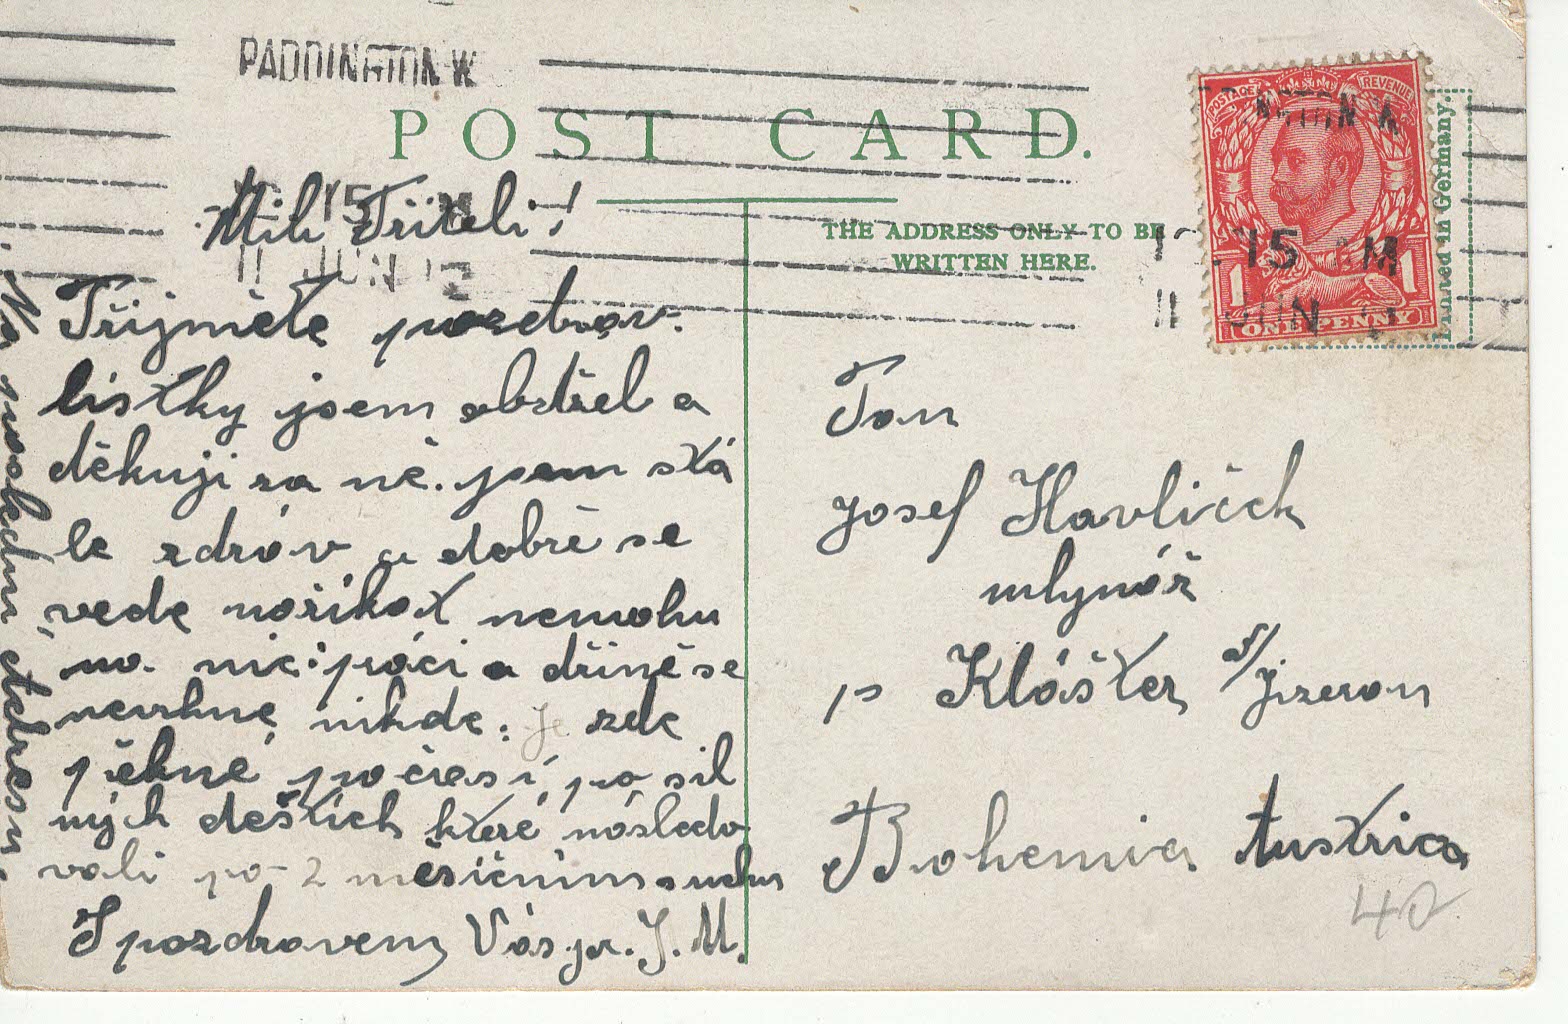 PADDINGTON W
POST CARD.
15
11 JUN 12
THE ADDRESS ONLY TO BE
WRITTEN HERE.
POSTAGE REVENUE
1 1
ONE PENNY
15 AM
11 JUN
in Germany.
Milí Příteli!
Přijměte pozdrav.
lístky jsem obdržel a
děkuji za ně. jsem stá
le zdráv a dobře se
vede naříkat nemohu
na nic: práci a dřině se
nevyhne nikde. je zde
pěkné počasí, po sil
ných deštích které následo
vali po 2 měsíčním suchu
S pozdravem Váš př. J. M.
Pan
Josef Havlíček
mlynář
p Klášter s/Jizerou
Bohemia Austria
40